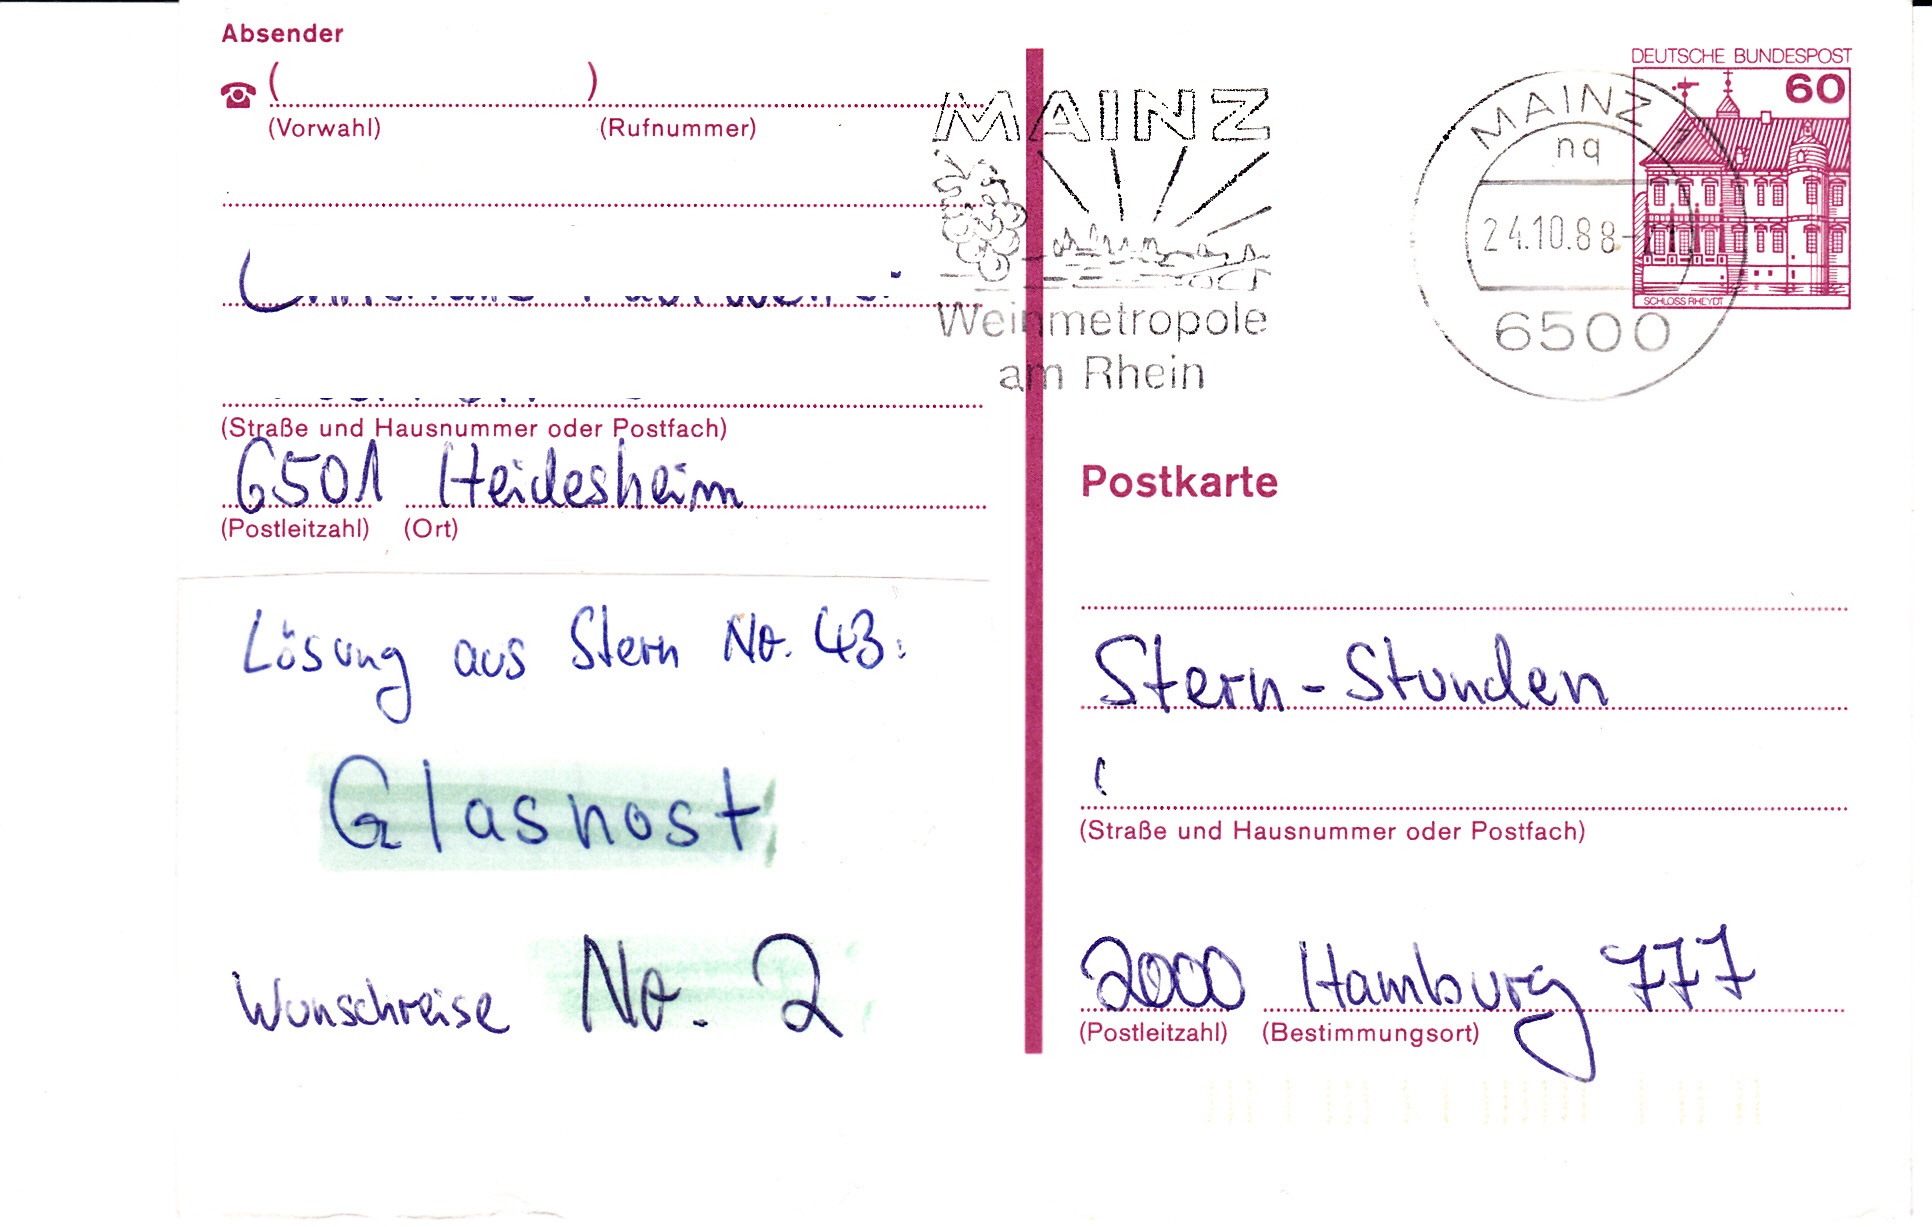 Absender
( )
(Vorwahl) (Rufnummer)
(Straße und Hausnummer oder Postfach)
6501 Heidesheim
(Postleitzahl) (Ort)
Lösung aus Stern Nr. 43:
Glasnost
Wunschreise Nr. 2
MAINZ
Weinmetropole
am Rhein
MAINZ
nq
24.10.88-
6500
DEUTSCHE BUNDESPOST
60
SCHLOSS RHEYDT
Postkarte
Stern-Stunden
(Straße und Hausnummer oder Postfach)
2000 Hamburg 777
(Postleitzahl) (Bestimmungsort)